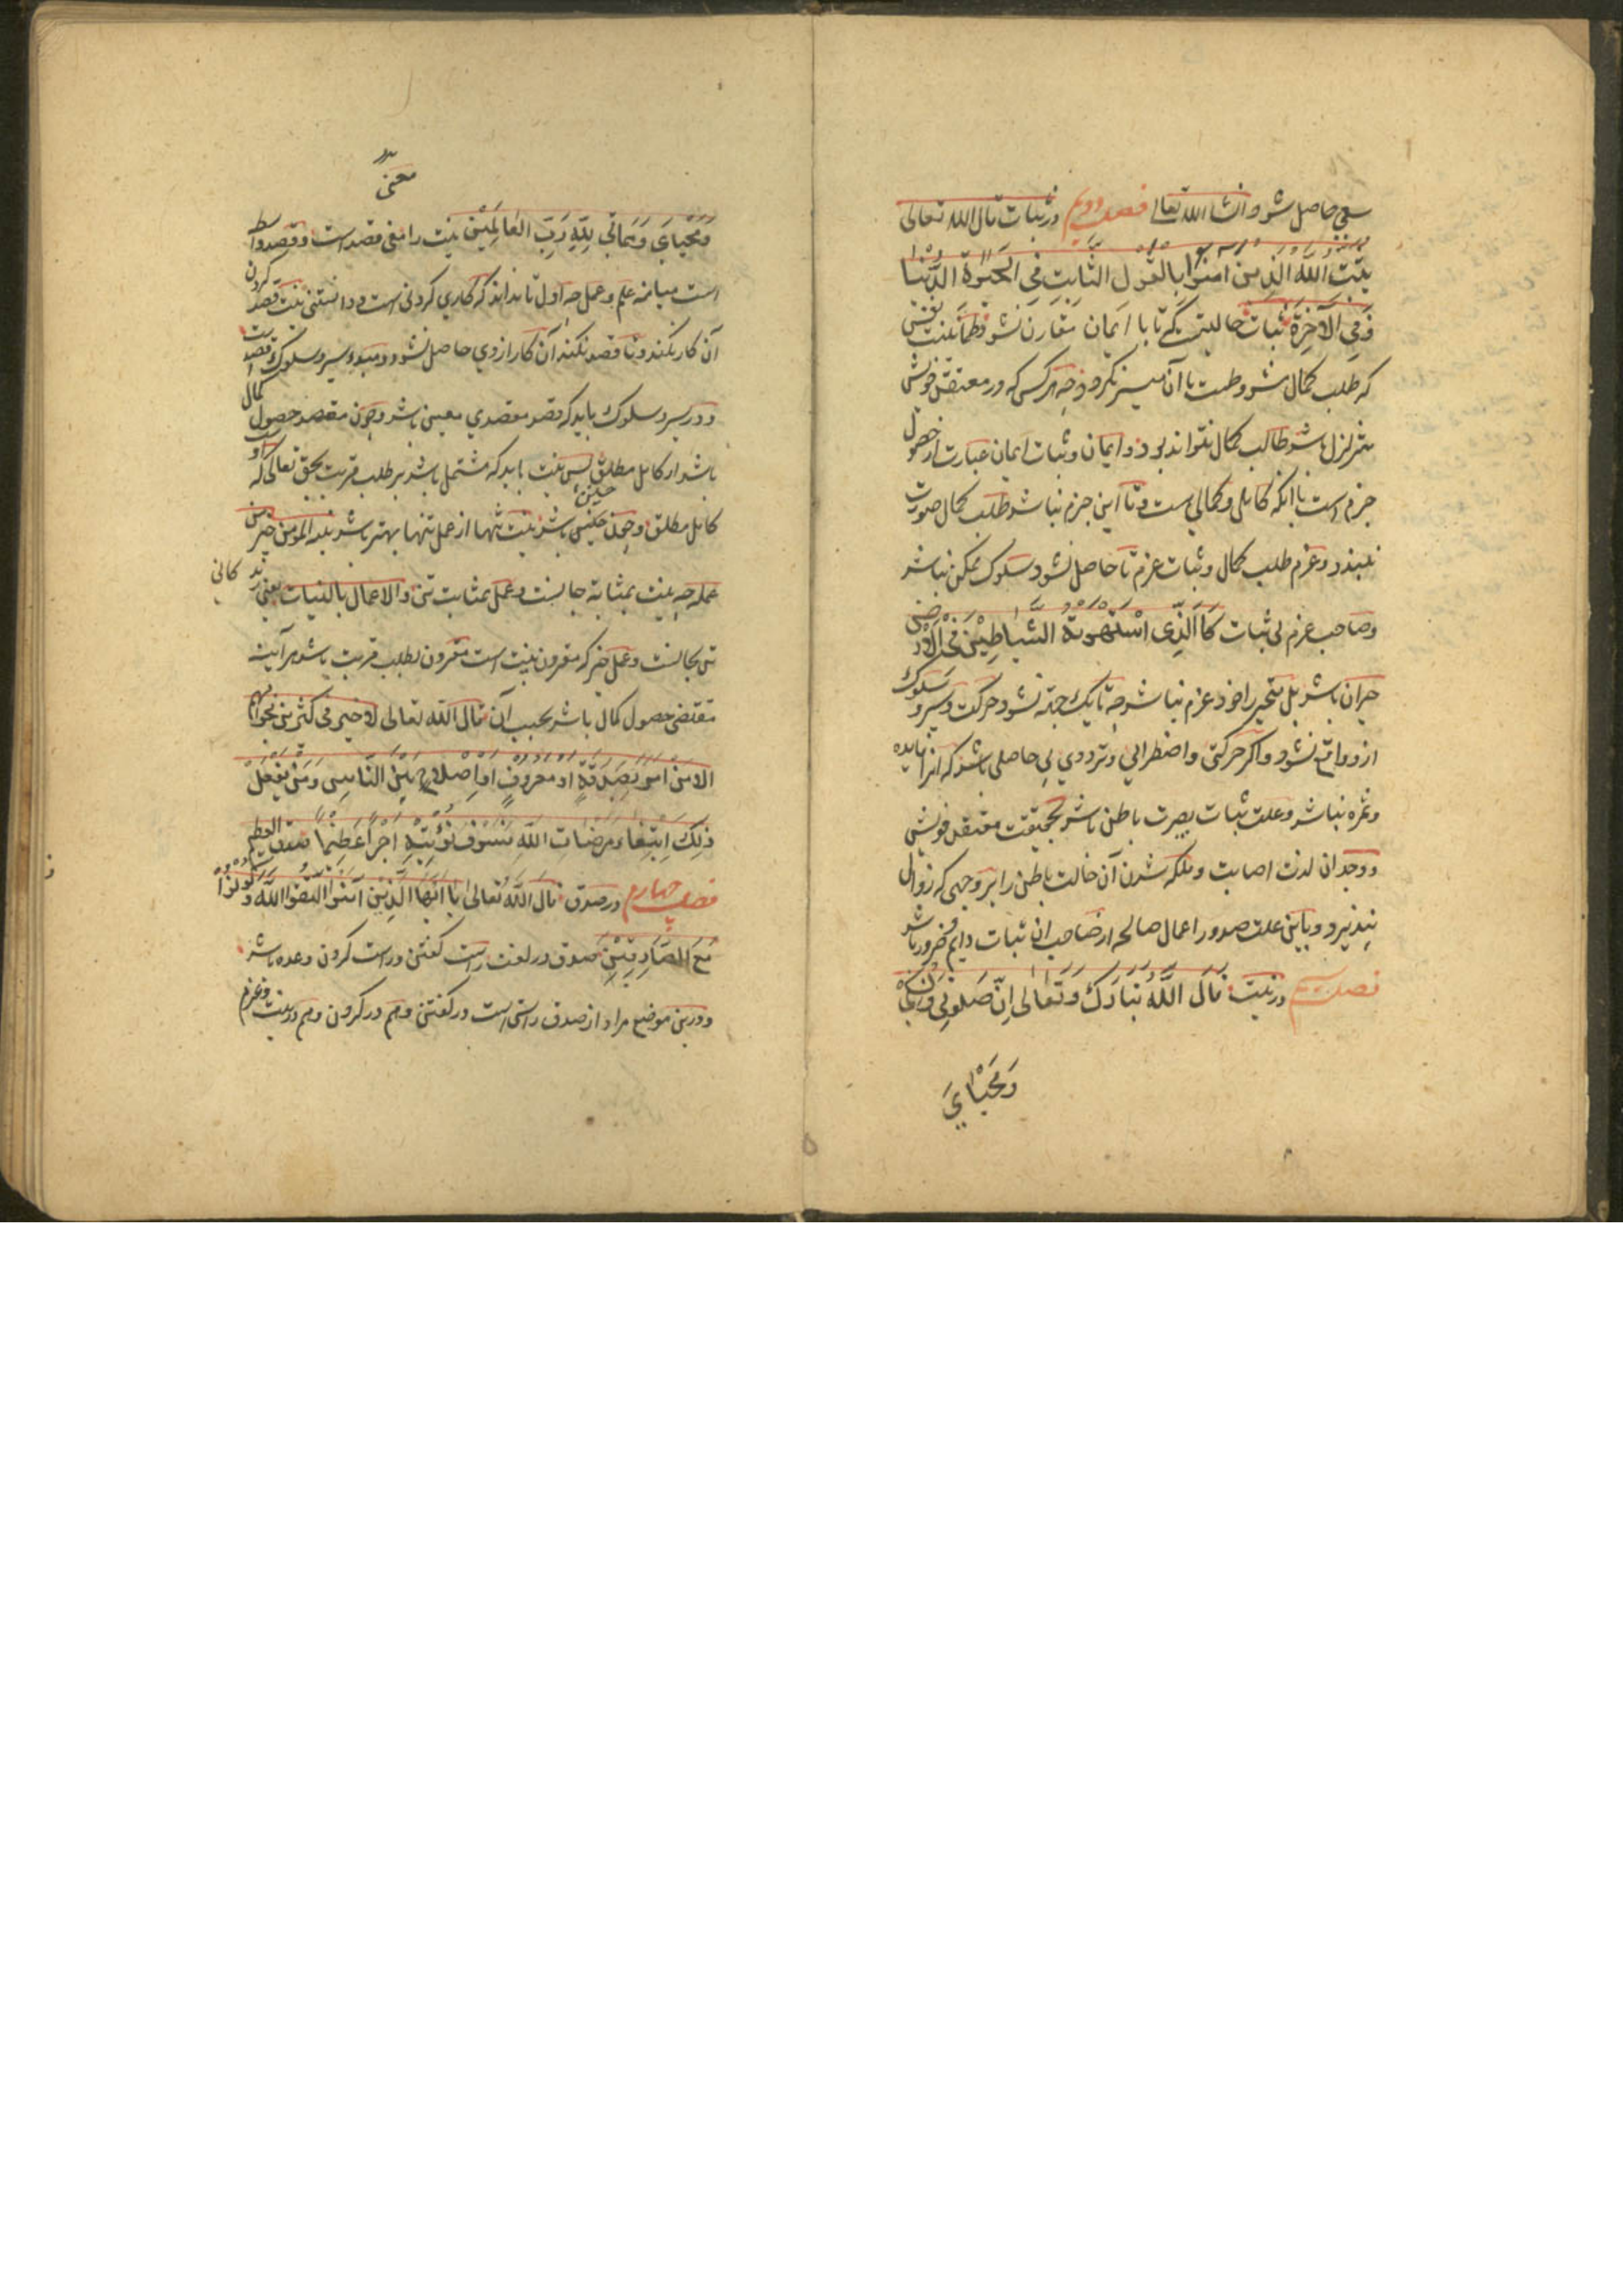 سعی حاصل شود انشا الله تعالی فصل دویم در ثبات قال الله تعالی
یثبت الله الذین امنوا بالقول الثابت فی الحیوة الدنیا
و فی الآخرة ثبات حالیتست که تا با ایمان مقارن نشود طمانینت نفس
که طلب کمال مشروطست با آن میسر نگردد چه هر کس که در معتقد خویش
متزلزل باشد طالب کمال نتواند بود و ایمان و ثبات ایمان عبارت از حصول
جزم است با آنکه کاملی و کمالی ست و تا این جزم نباشد طلب کمال صورت
نبندد و عزم طلب کمال و ثبات عزم تا حاصل نشود سلوک ممکن نباشد
و صاحب عزم بی ثبات کاالذی استهوته الشیاطین فی الارض
حیران باشد بل متحیر را خود عزم نباشد چه تا یک جهة نشود حرکت و سیر و سلوک
ازو واقع نشود و اگر حرکتی و اضطرابی و ترددی بی حاصلی باشد که آنرا فایده
و ثمره نباشد و علت ثبات بصیرت باطن باشد بحقیقت معتقد خویش
و وجدان لذت اصابت و ملکه شدن آن حالت باطن را بر وجهی که زوال
نپذیرد و باین علت صدور اعمال صالحه از صاحب ان ثبات دایم و ضرور باشد
فصل سیم در نیت قال الله تبارک و تعالی ان صلوتی و نسکی
و محیای
معنی
و محیای و مماتی لله رب العالمین نیت را معنی قصد است و قصد واسطه
است میانه علم و عمل چه اول تا نداند که کاری کردنی است و دانستنی نیت قصد کردن
آن کار نکند و تا قصد نکند آن کار ازوی حاصل نشود و مبدء سیر و سلوک قصد است
و در سیر و سلوک باید که قصد مقصدی معین باشد و چون مقصد حصول کمال
باشد از کامل مطلق پس نیت باید که مشتمل باشد بر طلب قربت بحق تعالی که او
کامل مطلق و چون چنین باشد نیت تنها از عمل تنها بهتر باشد نیة المومن خیر من
عمله چه نیت بمثابه جانست و عمل بمثابت تن و الاعمال بالنیات یعنی زند کانی
تن بجانست و عمل خیر که مقرون بنیت است مقرون بطلب قربت باشد هر آینه
مقتضی حصول کمال باشد بحسب آن قال الله تعالی لا خیر فی کثیر من نجواهم
الا من امر بصدقة او معروف او اصلاح بین الناس و من یفعل
ذلک ابتغاء مرضات الله فسوف نؤتیه اجرا عظیما صدق العظیم
فصل چهارم در صدق قال الله تعالی یا ایها الذین امنوا اتقوا الله و کونوا
مع الصادقین صدق در لغت راست گفتن و راست کردن وعده باشد
و درین موضع مراد از صدق راستی است در گفتن و هم در کردن و هم در نیت و عزم